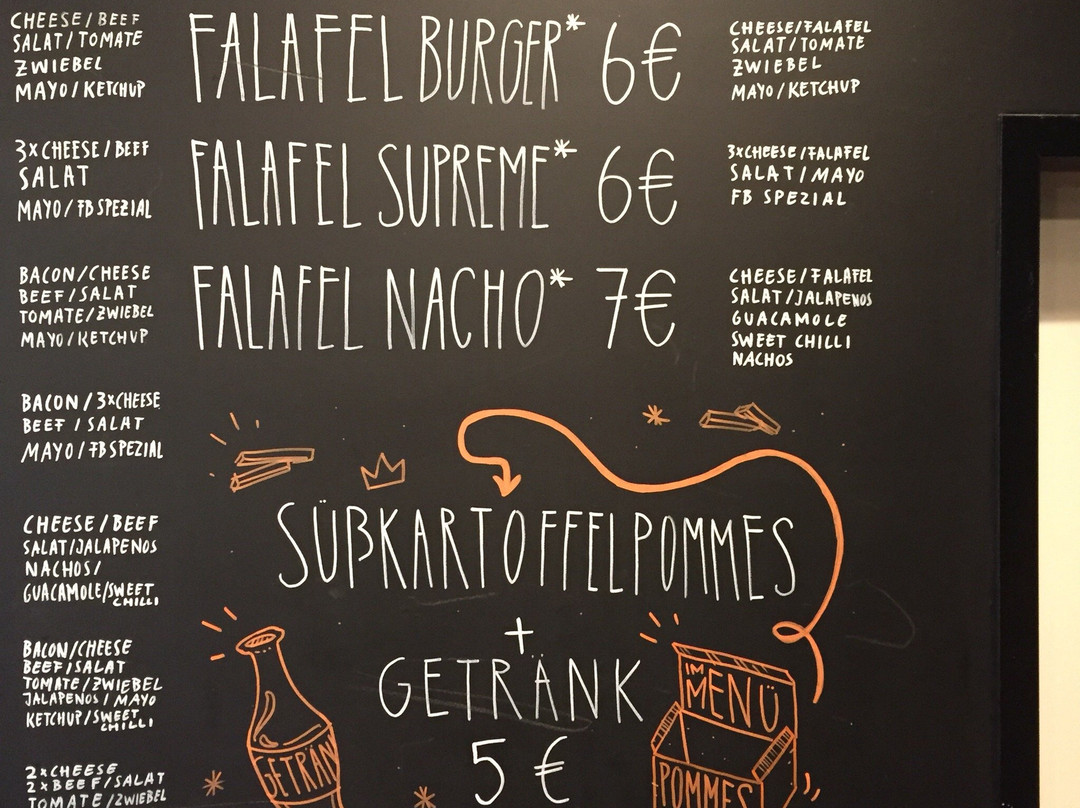 CHEESE/BEEF
SALAT/TOMATE
ZWIEBEL
MAYO/KETCHUP
FALAFEL BURGER* 6€
CHEESE/FALAFEL
SALAT/TOMATE
ZWIEBEL
MAYO/KETCHUP
3xCHEESE/BEEF
SALAT
MAYO/FB SPEZIAL
FALAFEL SUPREME* 6€
3xCHEESE/FALAFEL
SALAT/MAYO
FB SPEZIAL
BACON/CHEESE
BEEF/SALAT
TOMATE/ZWIEBEL
MAYO/KETCHUP
FALAFEL NACHO* 7€
CHEESE/FALAFEL
SALAT/JALAPENOS
GUACAMOLE
SWEET CHILLI
NACHOS
BACON/3xCHEESE
BEEF/SALAT
MAYO/FB SPEZIAL
CHEESE/BEEF
SALAT/JALAPENOS
NACHOS/
GUACAMOLE/SWEET
CHILLI
BACON/CHEESE
BEEF/SALAT
TOMATE/ZWIEBEL
JALAPENOS/MAYO
KETCHUP/SWEET
CHILLI
2xCHEESE
2xBEEF/SALAT
TOMATE/ZWIEBEL
SÜßKARTOFFELPOMMES
+
GETRÄNK
5 €
GETRÄN
IM
MENÜ
POMMES